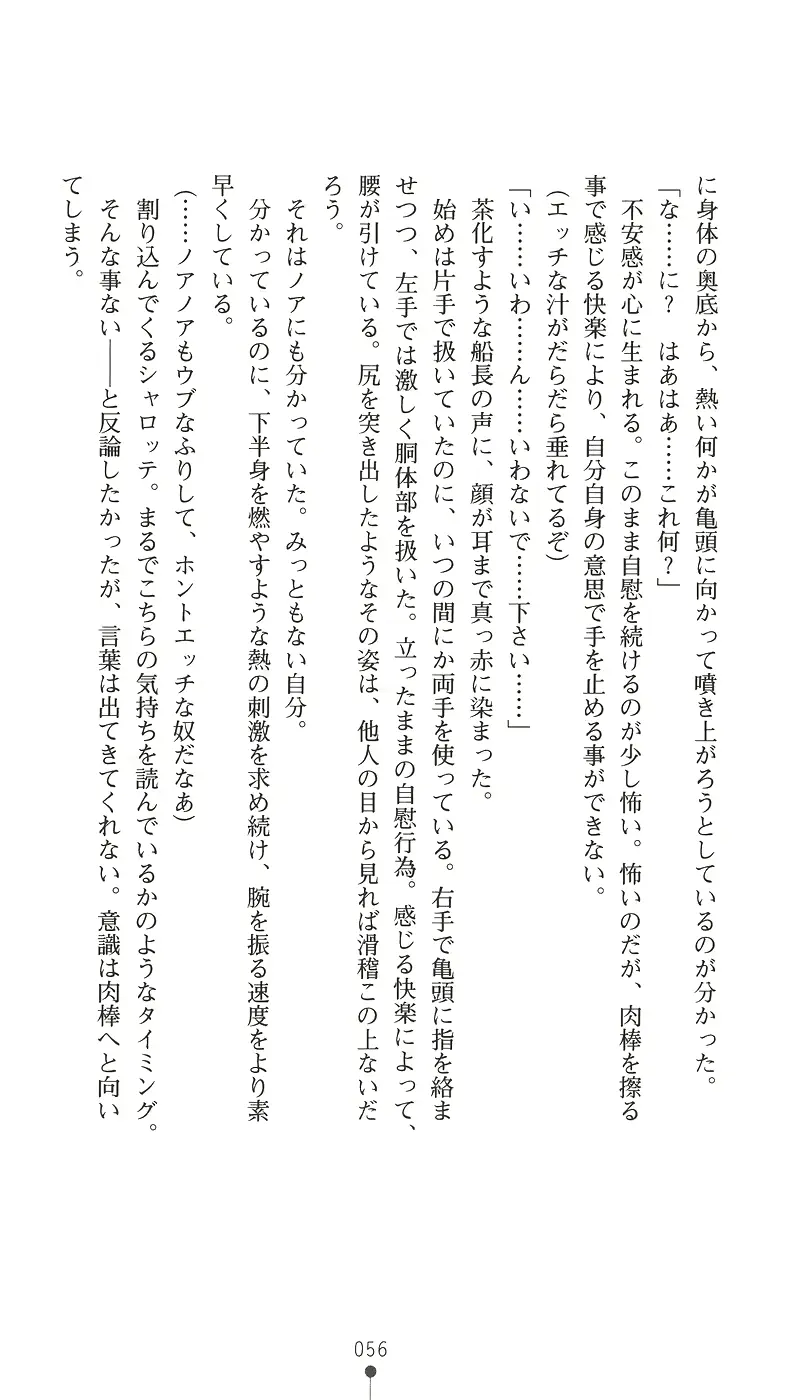 に身体の奥底から、熱い何かが亀頭に向かって噴き上がろうとしているのが分かった。
「な……に？　はあはあ……これ何？」
不安感が心に生まれる。このまま自慰を続けるのが少し怖い。怖いのだが、肉棒を擦る
事で感じる快楽により、自分自身の意思で手を止める事ができない。
(エッチな汁がだらだら垂れてるぞ)
「い……いわ……ん……いわないで……下さい……」
茶化すような船長の声に、顔が耳まで真っ赤に染まった。
始めは片手で扱いていたのに、いつの間にか両手を使っている。右手で亀頭に指を絡ま
せつつ、左手では激しく胴体部を扱いた。立ったままの自慰行為。感じる快楽によって、
腰が引けている。尻を突き出したようなその姿は、他人の目から見れば滑稽この上ないだ
ろう。
それはノアにも分かっていた。みっともない自分。
分かっているのに、下半身を燃やすような熱の刺激を求め続け、腕を振る速度をより素
早くしている。
(……ノアノアもウブなふりして、ホントエッチな奴だなあ)
割り込んでくるシャロッテ。まるでこちらの気持ちを読んでいるかのようなタイミング。
そんな事ない――と反論したかったが、言葉は出てきてくれない。意識は肉棒へと向い
てしまう。
056